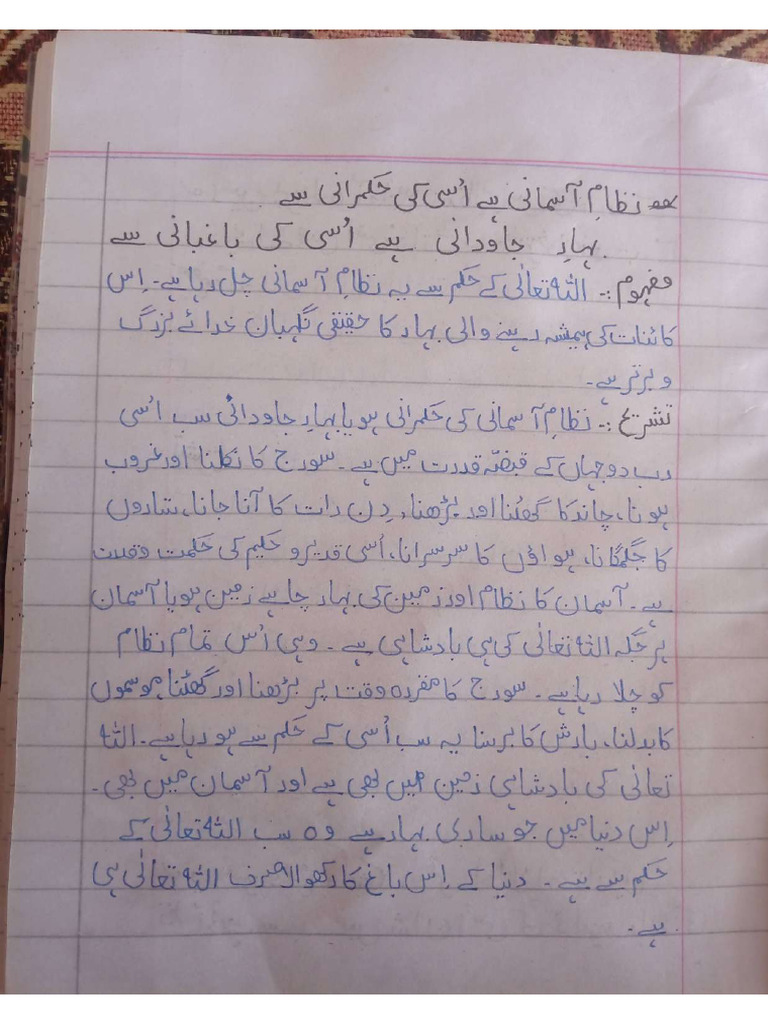 نظامِ آسمانی ہے اُسی کی حکمرانی سے
بہارِ جاودانی ہے اُسی کی باغبانی سے
مفہوم :۔ اللہ تعالٰی کے حکم سے یہ نظامِ آسمانی چل رہا ہے۔ اِس
کائنات کی ہمیشہ رہنے والی بہار کا حقیقی نگہبان خدائے بزرگ
و برتر ہے۔
تشریح :۔ نظامِ آسمانی کی حکمرانی ہو یا بہارِ جاودانی سب اُسی
رب دو جہاں کے قبضہ قدرت میں ہے۔ سورج کا نکلنا اور غروب
ہونا، چاند کا گھٹنا اور بڑھنا، دِن رات کا آنا جانا، ستاروں
کا جگمگانا، ہواؤں کا سرسرانا، اُسی قدیر و حکیم کی حکمت
ہے۔ آسمان کا نظام اور زمین کی بہار چاہے زمین ہو یا آسمان
ہر جگہ اللہ تعالٰی کی ہی بادشاہی ہے۔ وہی اُس تمام نظام
کو چلا رہا ہے۔ سورج کا مقررہ وقت پر بڑھنا اور گھٹنا، موسموں
کا بدلنا، بارش کا برسنا یہ سب اُسی کے حکم سے ہو رہا ہے۔ اللہ
تعالٰی کی بادشاہی زمین میں بھی ہے اور آسمان میں بھی۔
اِس دنیا میں جو ساری بہار ہے وہ سب اللہ تعالٰی کے
حکم سے ہے۔ دنیا کے اِس باغ کا رکھوالا صرف اللہ تعالٰی ہی
ہے۔